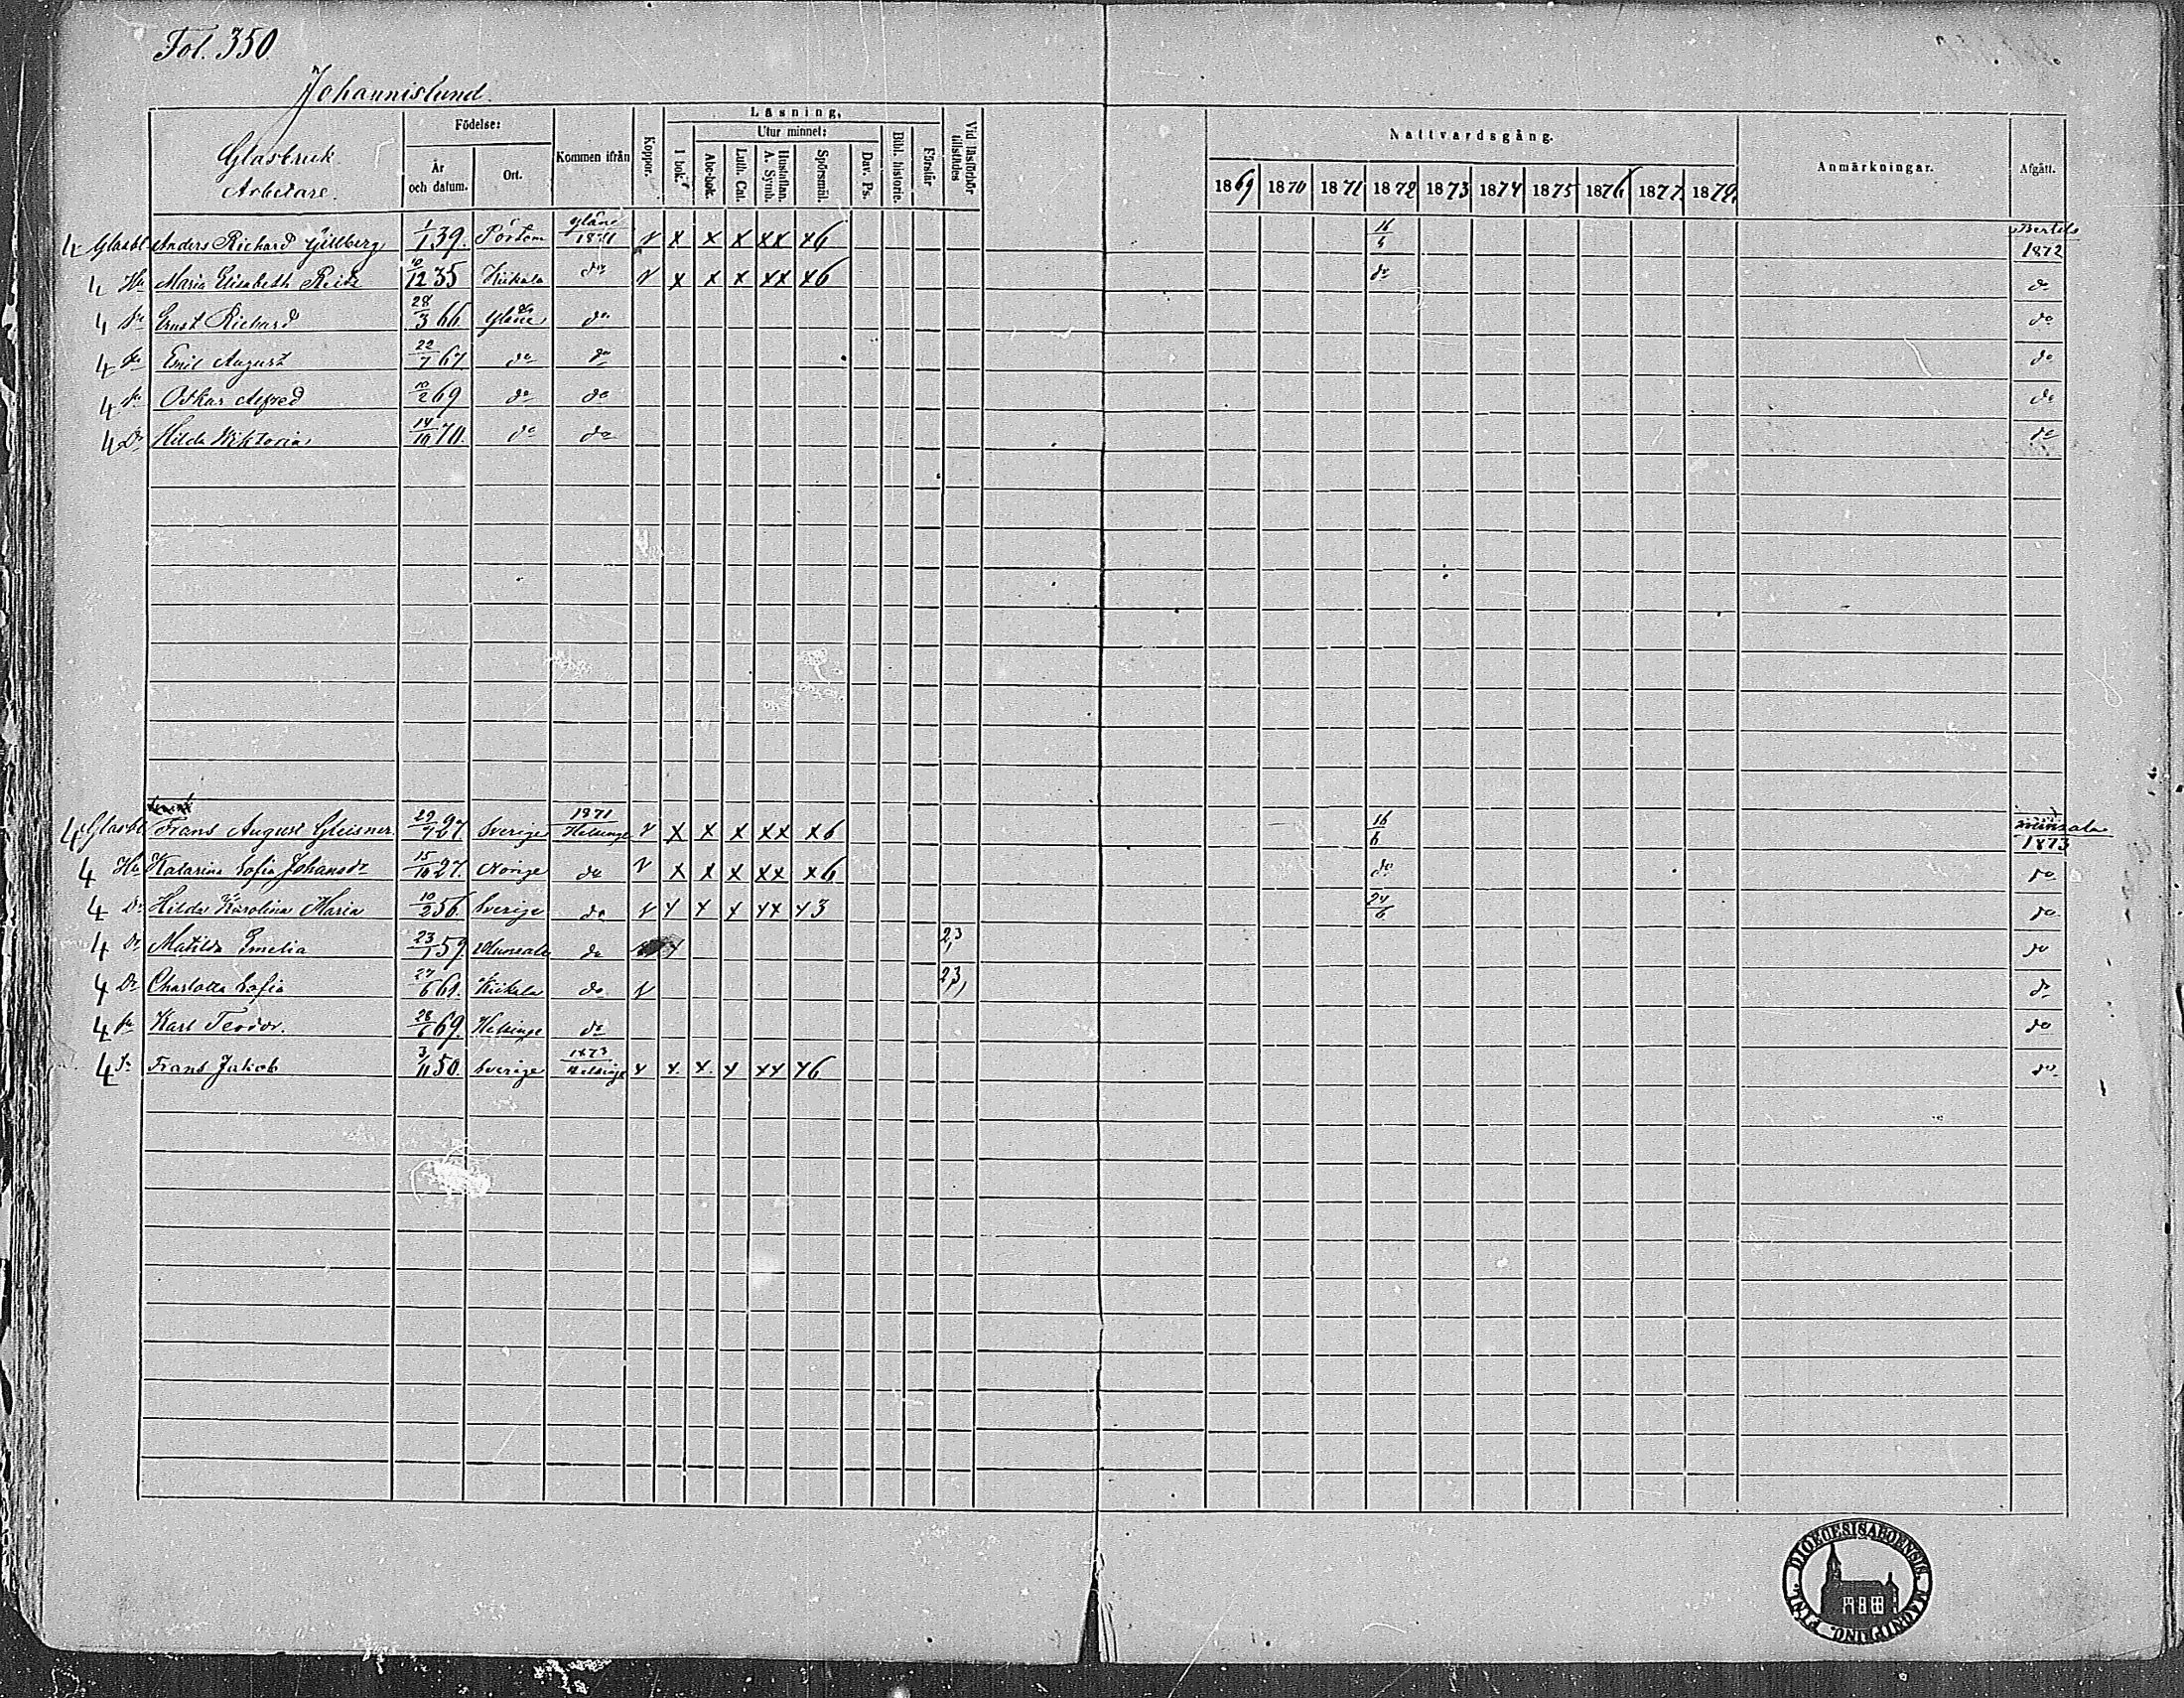 Fol. 350.
Johannislund.
Glasbruk
Arbetare.
Födelse:
År och datum.
Ort.
Kommen ifrån
Koppor.
Läsning,
I bok.
Utur minnet:
Abc-bok.
Luth. Cat.
Hustaflan. A. Symb.
Spörsmål.
Dav. Ps.
Bibl. historie.
Förstår
Vid läsförhör tillstädes
Nattvardsgång.
1869 1870 1871 1872 1873 1874 1875 1876 1877 1878
Anmärkningar.
Afgått.
4 Glasbl Anders Richard Gillberg 1/1 39. Pörtom 1871 v x x x xx x6 16/6 1872
4 Hu Maria Elisabeth 12 35 Kiikala do v x x x xx x6 do do
4 Sn Ernst Richard 28/3 66 do do
4 Sn Emil August 22/7 67 do do do
4 Sn Oskar Alfred 10/2 69 do do do
4 Dr Hilda Viktoria 14/10 70. do do do
4 Glasbl Frans August Gleisner 29/7 27 Sverige 1871 Helsinge v x x x xx x6 16/6 1873
4 Hu Katarina Sofia Johansdr 15/10 27. Norige do v x x x xx x6 do do
4 Dr Hilda Karolina Maria 10/2 56 Sverige do v x x x xx x3 24/6 do
4 Dr Matilda Emelia 23/1 59. Munsala do 2,3 do
4 Dr Charlotta Sofia 27/6 61. Kiikala do v 2,3, do
4 Sn Karl Teodor. 28/6 69. Helsinge do do
4 Sn Frans Jakob 3/11 50. Sverige 1873 Helsinge x x x x xx x6 do
DIOECESIS ABOENSIS. MAGNI PRINC. FINL.